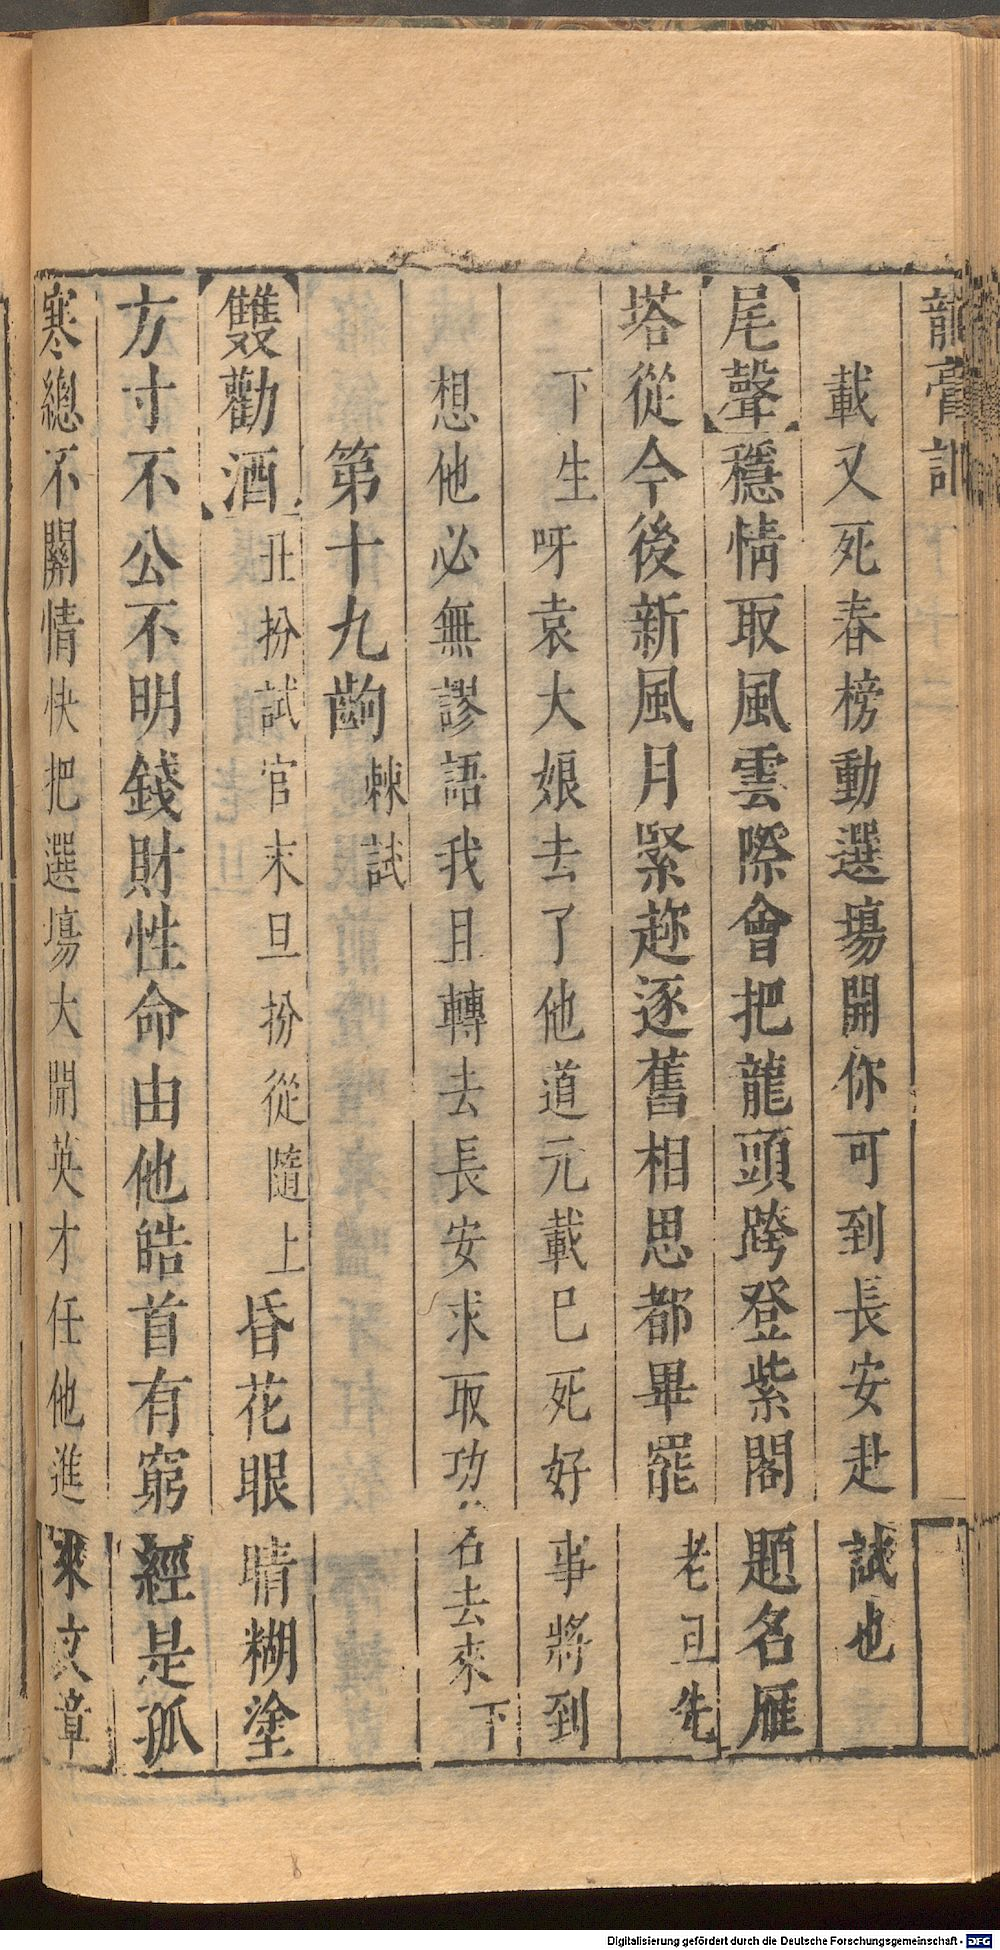 龍膏記
載又死春榜動選場開你可到長安赴試也
尾聲穩情取風雲際會把龍頭跨登紫閣題名雁
塔從今後新風月緊趂逐舊相思都畢罷老旦先
下生呀袁大娘去了他道元載巳死好事將到
想他必無謬語我且轉去長安求取功名去來下
第十九齣棘試
雙勸酒丑扮試官末旦扮從隨上昏花眼睛糊塗
方寸不公不明錢財性命由他皓首有窮經是孤
寒總不關情快把選場大開英才任他進來文章
Digitalisierung gefördert durch die Deutsche Forschungsgemeinschaft - DFG